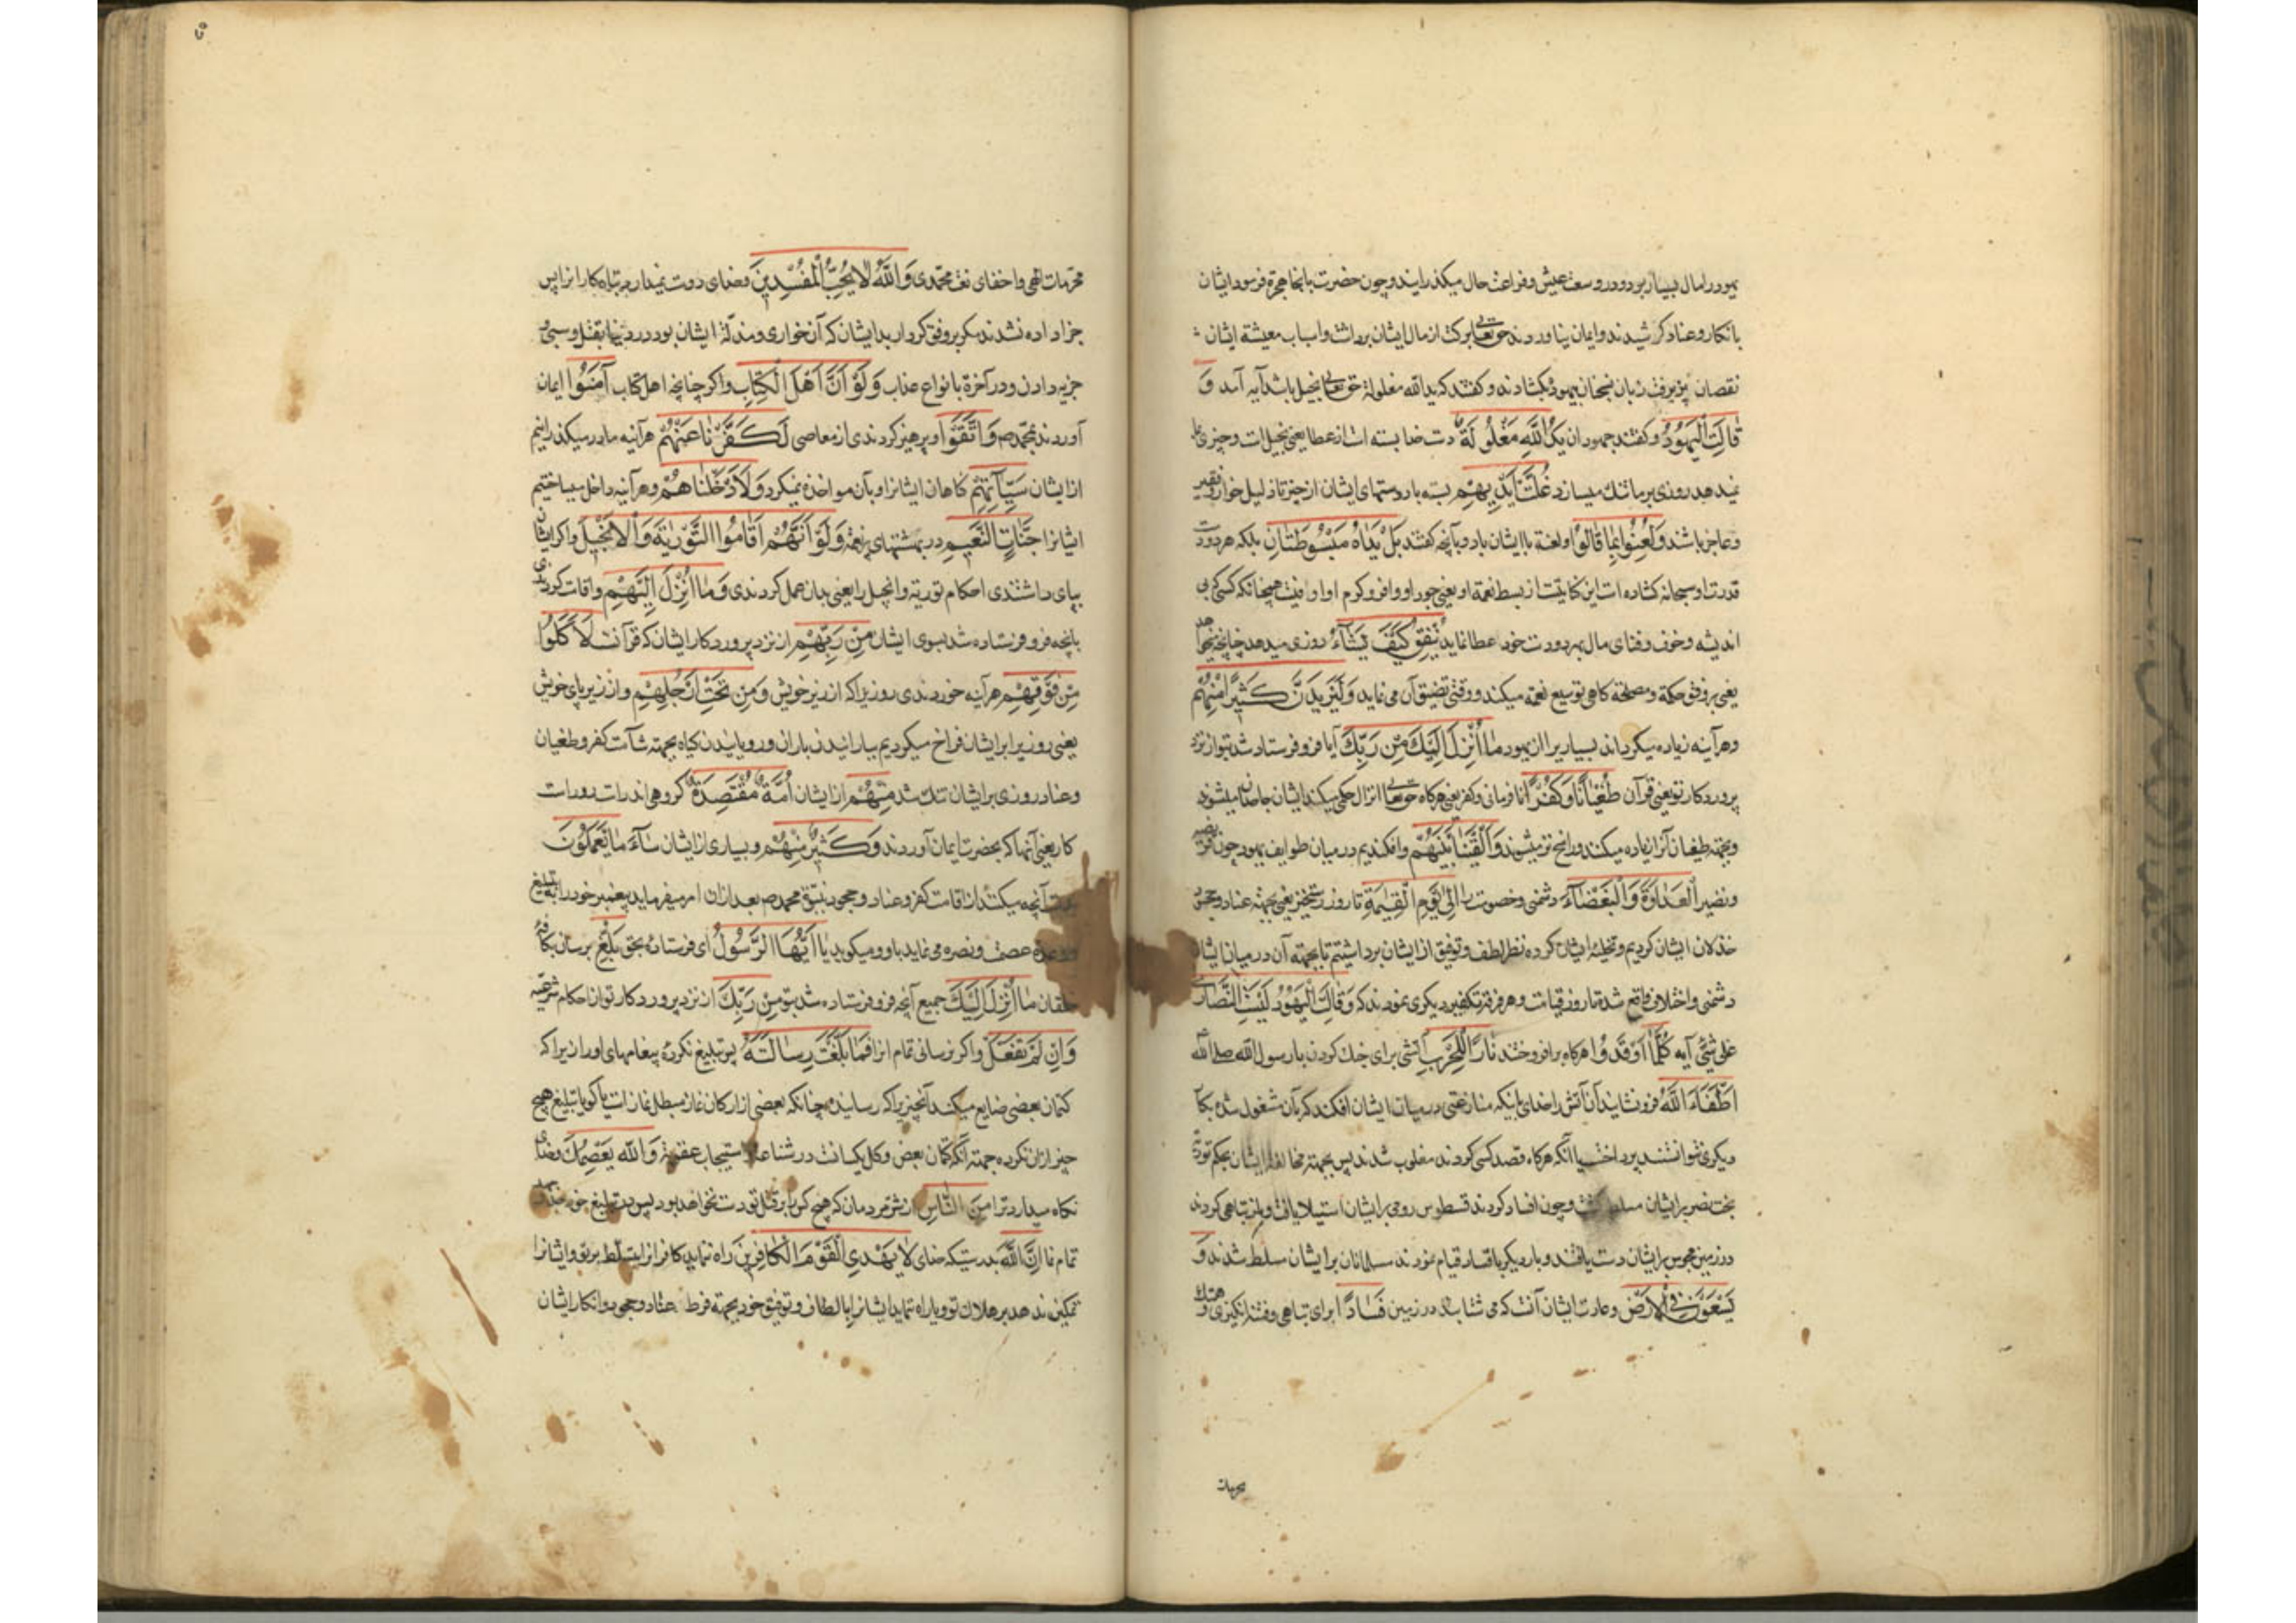 یهود را مال بسیار بود و در وسعت عیش و فراغت حال میکذرانیدند و چون حضرت بانجا هجرة فرمود ایشان
بانکار و عناد کرشیدند و ایمان نیاوردند حق تعالی برکت از مال ایشان برداشت و اسباب معیشة ایشان
نقصان پذیرفت زبان یهود بکشادند و کفتند که ید الله مغلولة حق تعالی بخیل باشد آیه آمد وَ
قَالَتِ الْیَهُودُ و کفتند جهودان یَدُ اللَّهِ مَغْلُولَةٌ دست خدا بسته است از عطا یعنی بخیل است و چیزی بما
نمیدهد و روزی بر ما تنک میسازد غُلَّتْ أَیْدِیهِمْ بسته باد دستهای ایشان از چیز تا ذلیل خوار و فقیر
و عاجز باشند وَلُعِنُوا بِمَا قَالُوا و لعنة با ایشان باد و بآنچه کفتند بَلْ یَدَاهُ مَبْسُوطَتَانِ بلکه هر دو دست
قدرت او سبحانه کشاده است این کنایتست از بسط نعمة او یعنی جود او وافر و کرم او اوفیست همچنانکه کسی که بی
اندیشه و خوف و فنای مال بهر دو دست خود عطا نماید یُنْفِقُ كَیْفَ یَشَاءُ روزی میدهد چنانچه میخواهد
یعنی بر وفق حکمة و مصلحة کاهی توسیع نعمة میکند و وقتی تضیق آن می نماید وَلَیَزِیدَنَّ كَثِیرًا مِنْهُمْ
و هر آینه زیاده میکرداند بسیاری را از یهود مَا أُنْزِلَ إِلَیْكَ مِنْ رَبِّكَ آیا فرو فرستاده شد بتو از نزد
پروردکار تو یعنی قرآن طُغْیَانًا وَكُفْرًا نافرمانی و کفر یعنی هرکاه حق تعالی انزال حکمی میکند ایشان جاحد میشوند
و بجهته طغیان آنرا زیاده میکند و راسخ تر میشوند وَأَلْقَیْنَا بَیْنَهُمُ و افکندیم در میان طوایف یهود چون قریضه
و نضیر الْعَدَاوَةَ وَالْبَغْضَاءَ دشمنی و خصومت را إِلَىٰ یَوْمِ الْقِیَامَةِ تا روز رستخیز یعنی بجهته عناد و جحود
خذلان ایشان کردیم و تخلیه ایشان کرده نظر لطف و توفیق از ایشان برداشتیم تا بجهته آن در میان ایشان
دشمنی و اختلاف واقع شد تا روز قیامت و هر فرقه تکفیر دیکری نمودند که وَقَالَتِ الْیَهُودُ لَیْسَتِ النَّصَارَىٰ
عَلَىٰ شَیْءٍ آیه كُلَّمَا أَوْقَدُوا هرکاه برافروختند نَارًا لِلْحَرْبِ آتشی برای جنک کردن با رسول الله صلی الله
أَطْفَأَهَا اللَّهُ فرو نشاند آن آتش را خدای بآنکه منازعتی در میان ایشان افکند که بآن مشغول شده بکار
دیکری نتوانستند پرداخت یا آنکه هرکاه قصد کسی کردند مغلوب شدند پس بجهته مخالفت ایشان بحکم توریة
بخت نصر بر ایشان مسلط کشت و چون افساد کردند فسطوس رومی بر ایشان استیلا یافت و باز تباهی کردند
در زمین مجوس بر ایشان دست یافتند و بار دیکر بافساد قیام نمودند مسلمانان بر ایشان مسلط شدند وَ
یَسْعَوْنَ فِی الْأَرْضِ و عادت ایشان آنست که می شتابند در زمین فَسَادًا برای تباهی و فتنه انکیزی و هتک
محرمات
محرمات الهی و اخفای نعت محمدی وَاللَّهُ لَا یُحِبُّ الْمُفْسِدِینَ و خدای دوست نمیدارد تباه کارانرا پس
جزا داده نشدند مکر بر وفق کردار بد ایشان که آن خواری و مذلة ایشان بود در دنیا بقتل و سبی و
جزیه دادن و در آخرة بانواع عذاب وَلَوْ أَنَّ أَهْلَ الْكِتَابِ و اکر چنانچه اهل کتاب آمَنُوا ایمان
آوردند بمحمد ص وَاتَّقَوْا و پرهیز کردندی از معاصی لَكَفَّرْنَا عَنْهُمْ هر آینه ما در میکذرانیم
از ایشان سَیِّئَاتِهِمْ کناهان ایشانرا و بآن مواخذه نمیکرد وَلَأَدْخَلْنَاهُمْ و هر آینه داخل میساختیم
ایشانرا جَنَّاتِ النَّعِیمِ در بهشتهای پر نعمة وَلَوْ أَنَّهُمْ أَقَامُوا التَّوْرَاةَ وَالْإِنْجِیلَ و اکر ایشان
بپای داشتندی احکام توریة و انجیل را یعنی بدان عمل کردندی وَمَا أُنْزِلَ إِلَیْهِمْ و اقامت کردندی
بآنچه فرو فرستاده شد بسوی ایشان مِنْ رَبِّهِمْ از نزد پروردکار ایشان که قرآنست لَأَكَلُوا
مِنْ فَوْقِهِمْ هر آینه خوردندی روزی را که از زبر خویش وَمِنْ تَحْتِ أَرْجُلِهِمْ و از زیر پای خویش
یعنی روزی را بر ایشان فراخ میکردیم ببارانیدن باران و رویانیدن کیاه بجهته شآمت کفر و طغیان
و عناد روزی بر ایشان تنک شد مِنْهُمْ از ایشان أُمَّةٌ مُقْتَصِدَةٌ کروهی اند راست رو راست
کار یعنی آنها که بحضرت ایمان آوردند وَكَثِیرٌ مِنْهُمْ و بسیاری از ایشان سَاءَ مَا یَعْمَلُونَ
بدست آنچه میکنند از اقامت کفر و عناد و جحود نبوة محمد ص بعد از آن امر میفرماید پیغمبر خود را به تبلیغ
و وعده عصمت و نصره می نماید باو و میکوید یَا أَیُّهَا الرَّسُولُ ای فرستاده بحق بَلِّغْ برسان بکافه
خلقان مَا أُنْزِلَ إِلَیْكَ جمیع آنچه فرو فرستاده شد بتو مِنْ رَبِّكَ از نزد پروردکار تو از احکام شرعیه
وَإِنْ لَمْ تَفْعَلْ و اکر نرسانی تمام انرا فَمَا بَلَّغْتَ رِسَالَتَهُ پس تبلیغ نکرده پیغامهای او را زیرا که
کتمان بعضی ضایع میکند آنچیزیرا که رسانیده چنانکه بعضی از ارکان نماز مبطل نماز است یا کویا تبلیغ هیچ
چیز از آن نکرده جهته آنکه کتمان بعض و کل یکسانست در شناعت و استیجاب عقوبة وَاللَّهُ یَعْصِمُكَ و خدای
نکاه میدارد ترا مِنَ النَّاسِ از شر مردمان که هیچ کس را بر قتل تو دست نخواهد بود پس در تبلیغ خود
تمام نما إِنَّ اللَّهَ بدرستیکه خدای لَا یَهْدِی الْقَوْمَ الْكَافِرِینَ راه ننماید کافرانرا بتسلط بر تو و ایشانرا
تمکین ندهد بر هلاک تو و یا راه ننماید ایشانرا بالطاف و توفیق خود بجهته فرط عناد و جحود و انکار ایشان